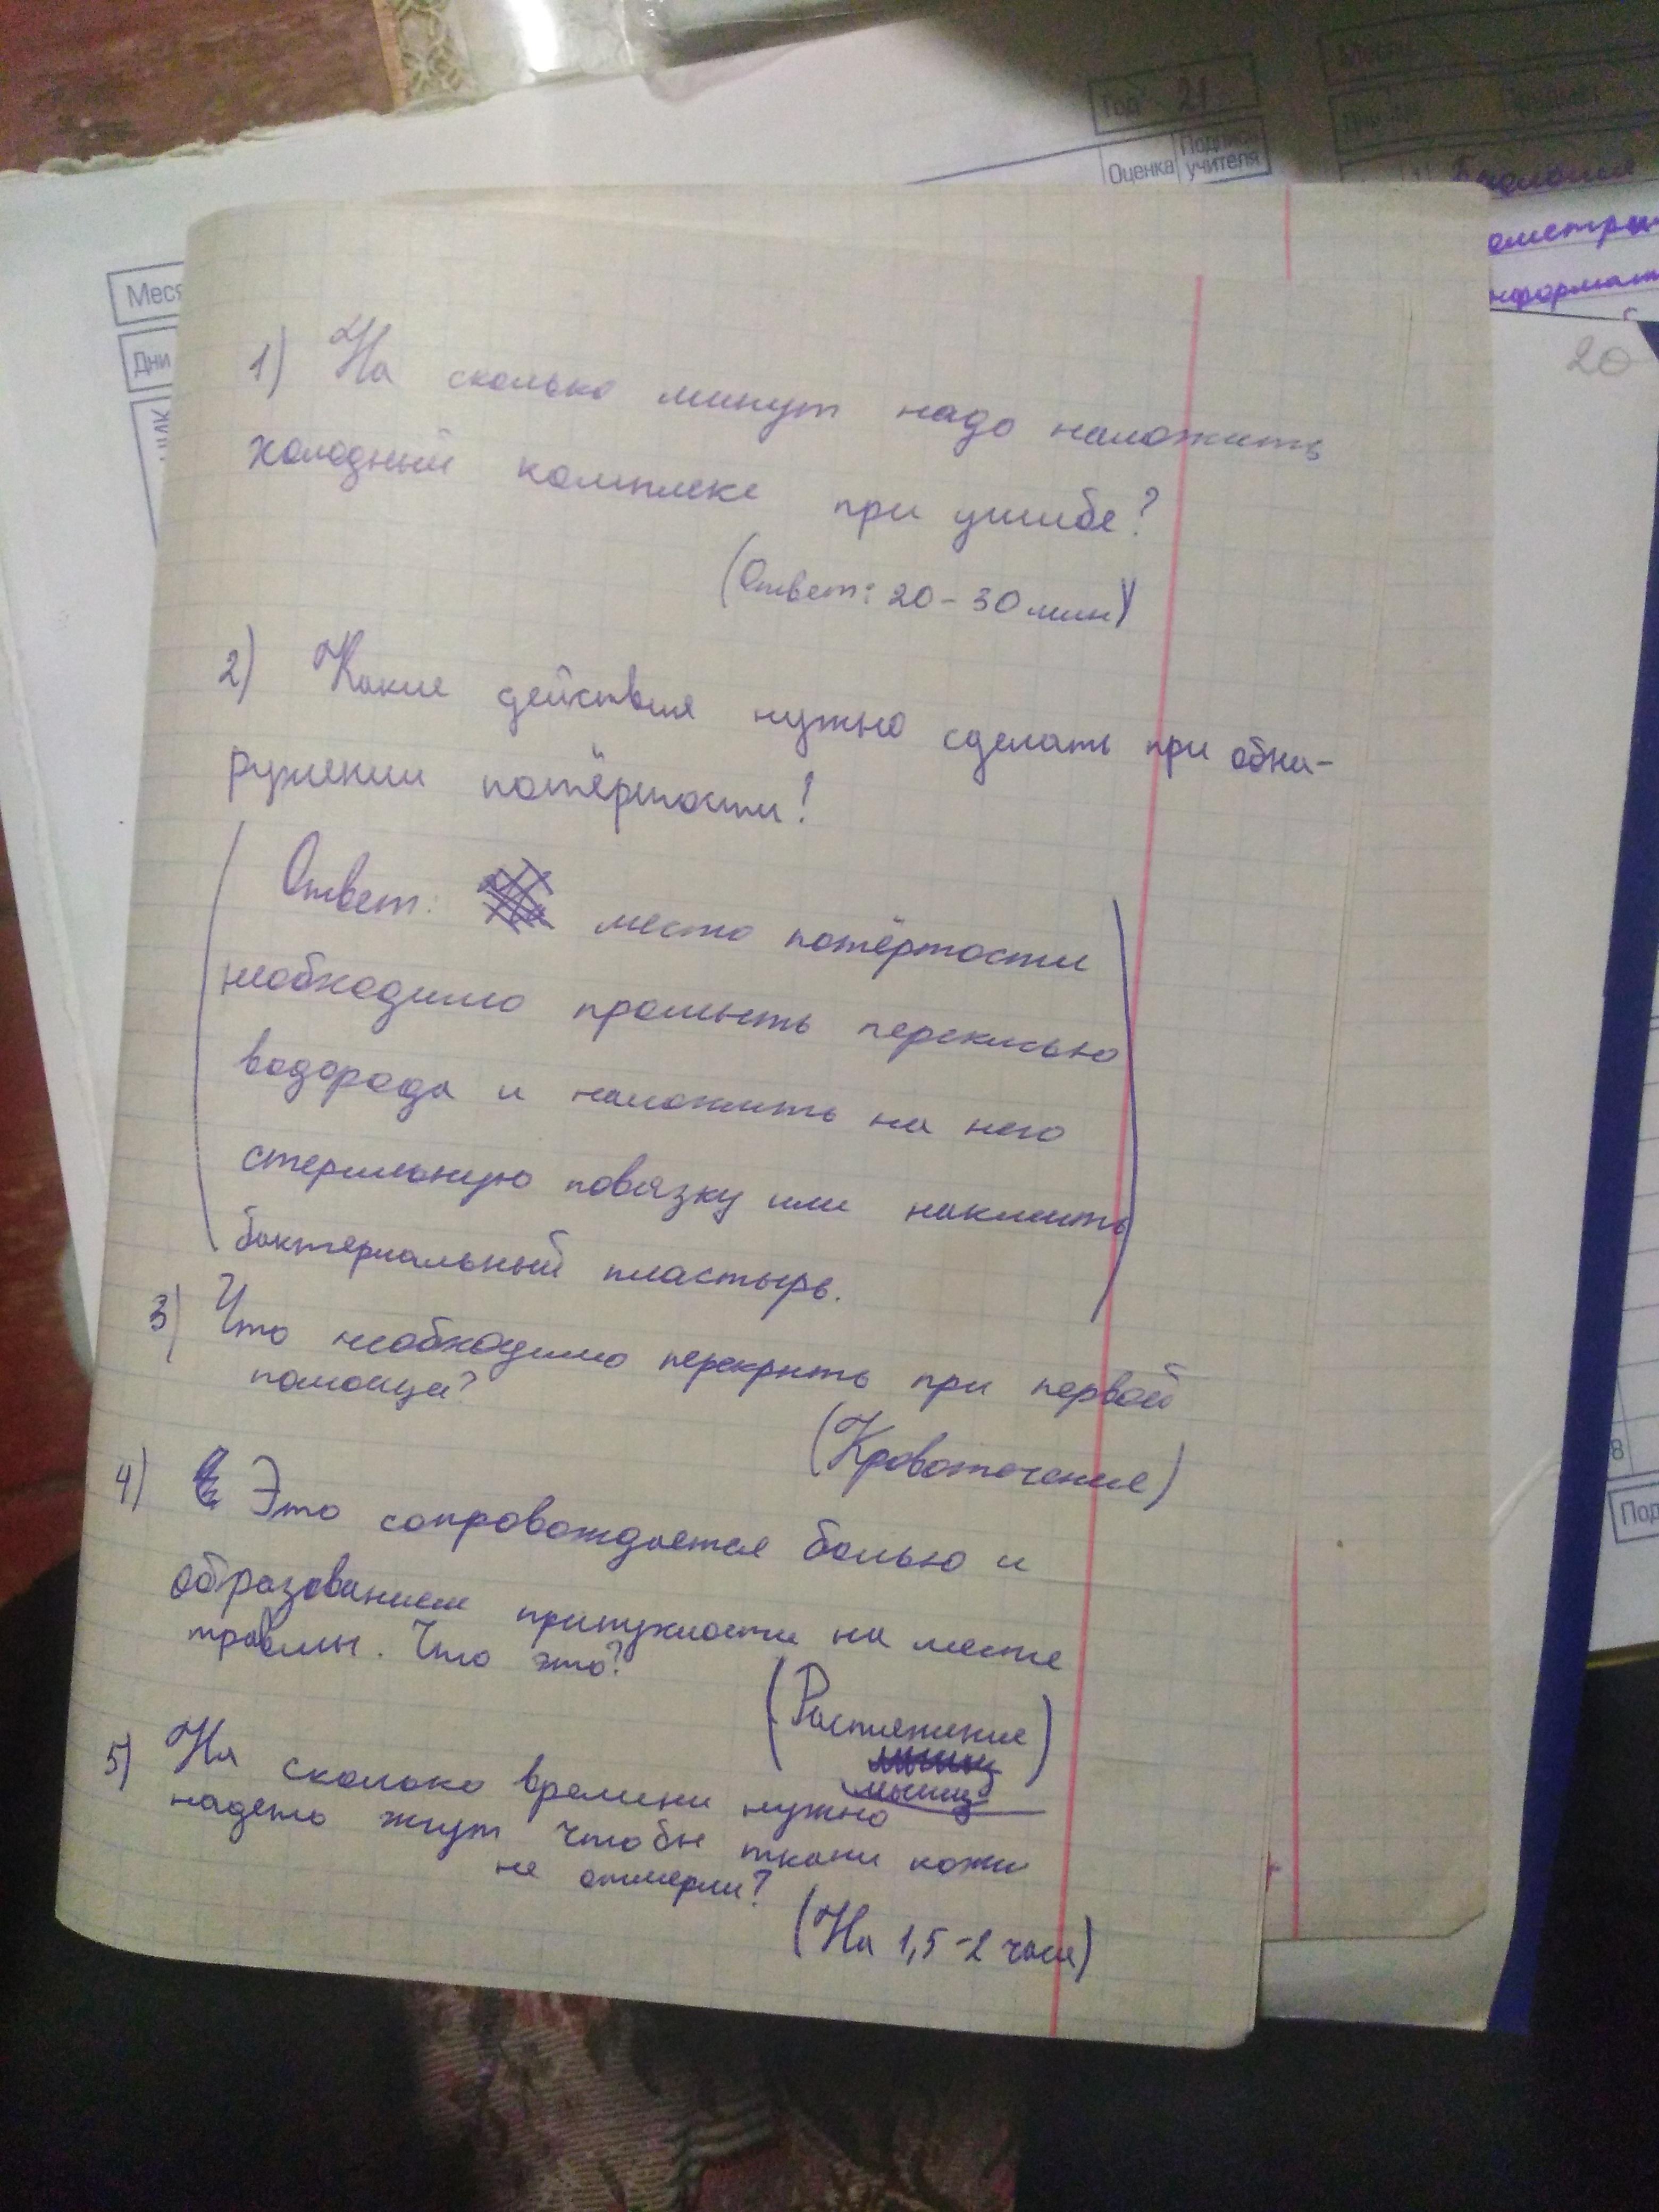 Год 21
Оценка Подпись учителя
Меся
Дни
20
1) На сколько минут надо наложить
холодный комплекс при ушибе?
(Ответ: 20-30 мин)
2) Какие действия нужно сделать при обна-
ружении потёртости!
(Ответ: место потёртости
необходимо промыть перекисью
водорода и наложить на него
стерильную повязку или наклеить
бактериальный пластырь.)
3) Что необходимо перекрыть при первой
помощи?
(Кровотечение)
4) Это сопровождается болью и
образованием припухлости на месте
травмы. Что это?
(Растяжение)
мышц
5) На сколько времени нужно
надеть жгут чтобы ткани кожи
не отмерли?
(На 1,5-2 часа)
8
Под